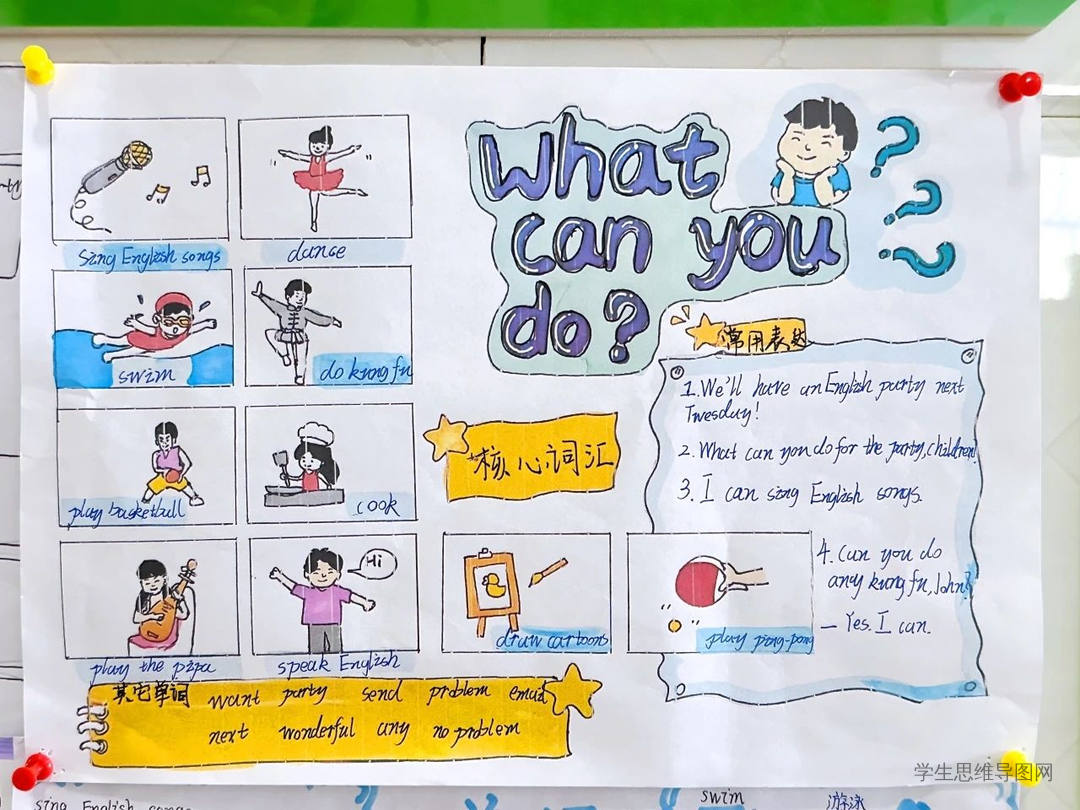 What
can you
do?
? ? ?
sing English songs
dance
swim
do kung fu
play basketball
cook
核心词汇
常用表达
1. We'll have an English party next
Tuesday!
2. What can you do for the party, children?
3. I can sing English songs.
4. Can you do
any kung fu, John?
— Yes. I can.
Hi
play the pipa
speak English
draw cartoons
play ping-pong
其它单词 want party send problem email
next wonderful any no problem
学生思维导图网
sing English songs
swim
游泳